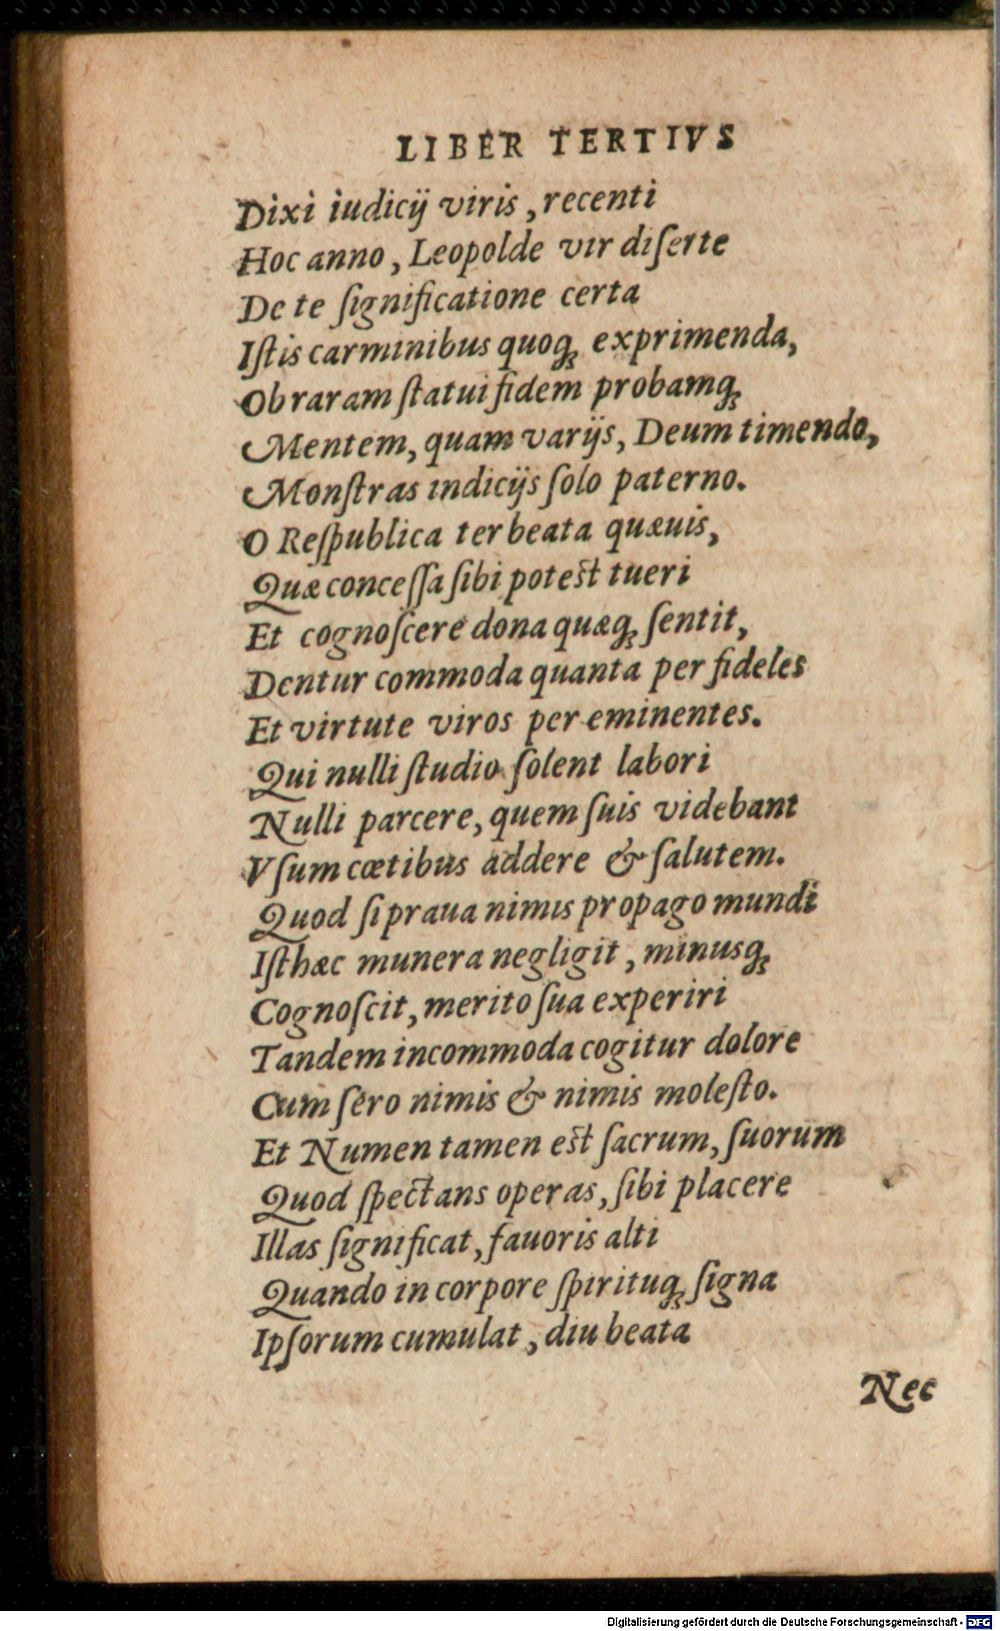 LIBER TERTIVS
Dixi iudicij viris, recenti
Hoc anno, Leopolde vir diſerte
De te ſignificatione certa
Iſtis carminibus quoq; exprimenda,
Ob raram ſtatui fidem probamq;
Mentem, quam varijs, Deum timendo,
Monſtras indicijs ſolo paterno.
O Reſpublica ter beata quæuis,
Quæ conceſſa ſibi poteſt tueri
Et cognoſcere dona quæq; ſentit,
Dentur commoda quanta per fideles
Et virtute viros per eminentes.
Qui nulli ſtudio ſolent labori
Nulli parcere, quem ſuis videbant
Vſum cœtibus addere & ſalutem.
Quod ſi praua nimis propago mundi
Iſthæc munera negligit, minusq;
Cognoſcit, merito ſua experiri
Tandem incommoda cogitur dolore
Cum ſero nimis & nimis moleſto.
Et Numen tamen eſt ſacrum, ſuorum
Quod ſpectans operas, ſibi placere
Illas ſignificat, fauoris alti
Quando in corpore ſpirituq; ſigna
Ipſorum cumulat, diu beata
Nec
Digitalisierung gefördert durch die Deutsche Forschungsgemeinschaft - DFG